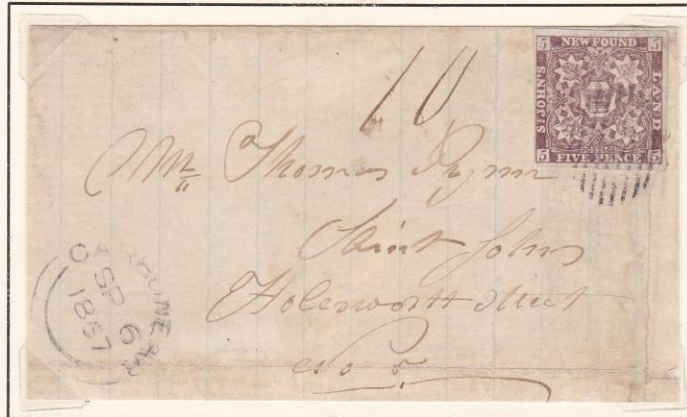 5 NEWFOUND 5
ST JOHN'S
LAND
POSTAGE
5 FIVE PENCE 5
10
Mr Thomas
Saint Johns
Holesworth Street
No 8
CARBONEAR
SP 6
1857